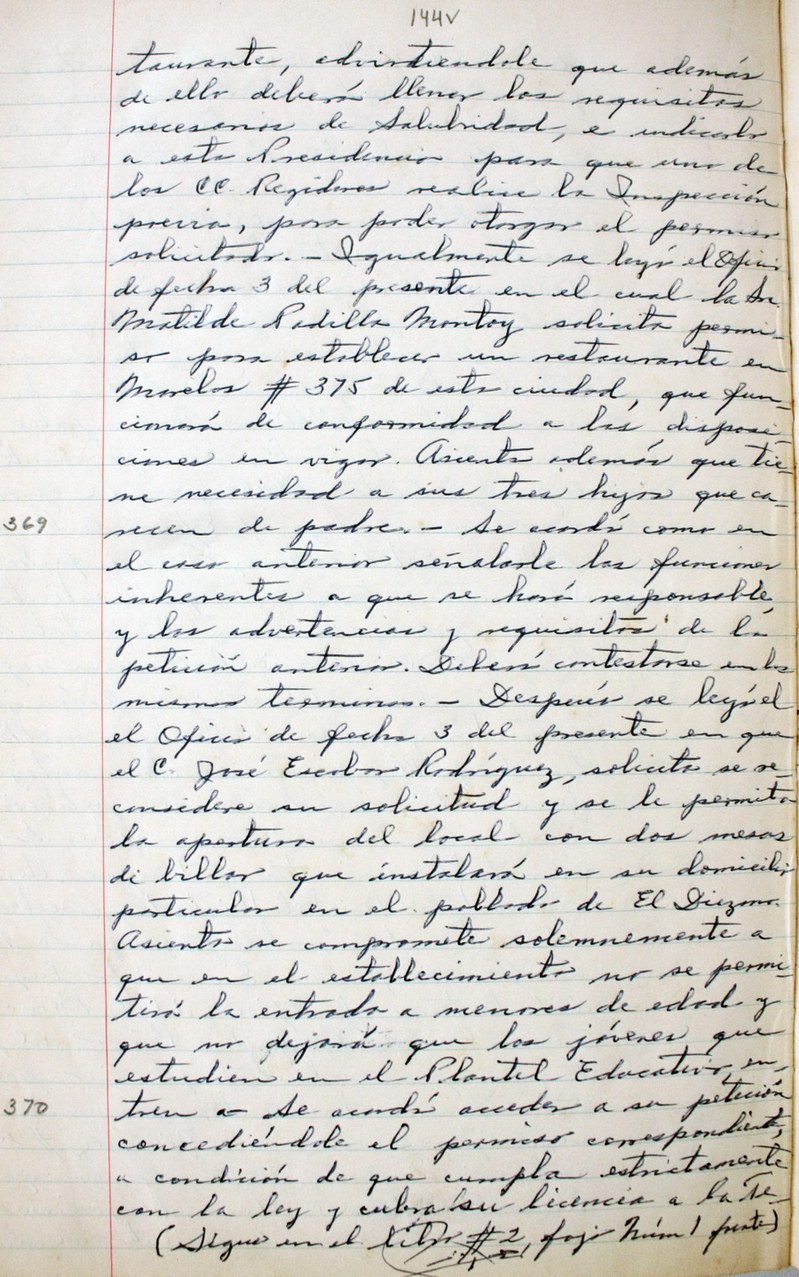 144v
taurante, advirtiendole que además
de ello deberá llenar los requisitos
necesarios de Salubridad, e indicarlo
a esta Presidencia para que uno de
los CC. Regidores realice la Inspección
previa, para poder otorgar el permiso
solicitado. - Igualmente se leyó el Oficio
de fecha 3 del presente en el cual la Sra.
Matilde Padilla Montoy solicita permi-
so para establecer un restaurante en
Morelos # 375 de esta ciudad, que fun-
cionará de conformidad a las disposi-
ciones en vigor. Asienta además que tie-
ne necesidad a sus tres hijos que ca-
369
recen de padre. - Se acordó como en
el caso anterior señalarle las funciones
inherentes a que se hará responsable,
y las advertencias y requisitos de la
petición anterior. Deberá contestarse en los
mismos terminos. - Después se leyó el
el Oficio de fecha 3 del presente en que
el C. José Escobar Rodríguez, solicita se re-
considere su solicitud y se le permita
la apertura del local con dos mesas
de billar que instalará en su domicilio
particular en el poblado de El Diezmo.
Asienta se compromete solemnemente a
que en el establecimiento no se permi-
tirá la entrada a menores de edad y
que no dejará que los jóvenes que
estudien en el Plantel Educativo, en-
370
tren a - Se acordó acceder a su petición
concediéndole el permiso correspondiente,
a condición de que cumpla estrictamente
con la ley y cubra su licencia a la Te-
(Sigue en el libro # 2, foja Núm 1 frente)